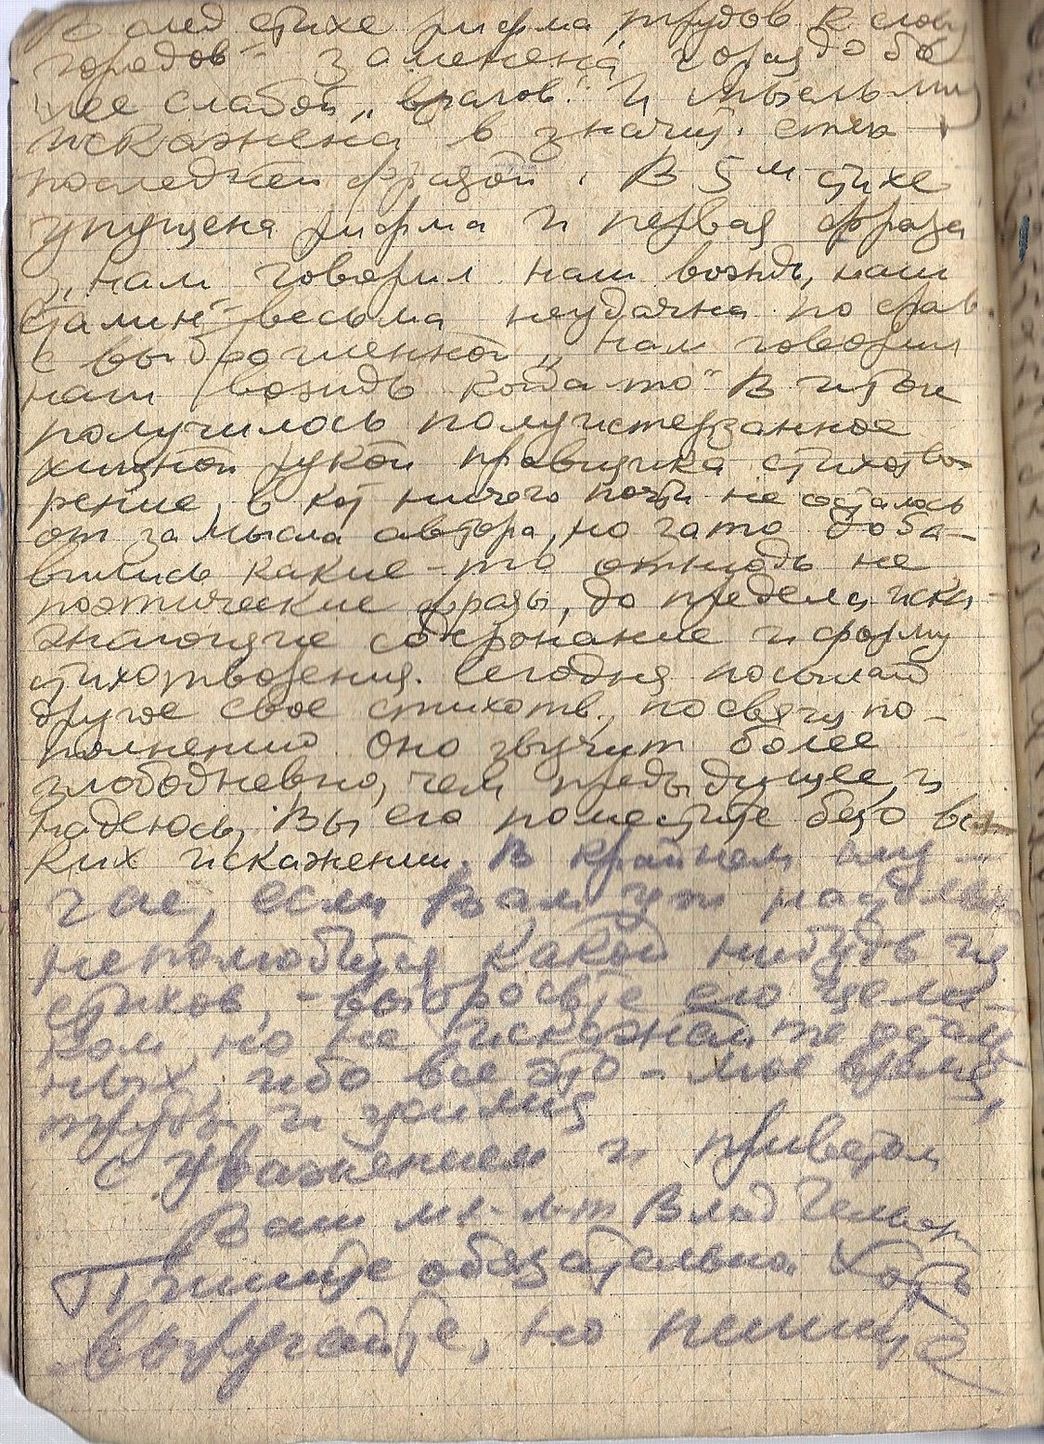 В след стихе рифма „трудов к слову
городов" заменена гораздо бо
лее слабой „врагов." И мысль
искажена в значит. степ
последней фразой. В 5м стихе
упущена рифма и первая фраза
„нам говорил наш вождь, наш
Сталин" весьма неудачна по срав.
с выброшенной „нам говорил
наш вождь когда то" В итоге
получилось полуистерзанное
хищной рукой правщика стихотво-
рение, в кот ничего почти не осталось
от замысла автора, но зато доба-
вились какие-то отнюдь не
поэтические фразы, до предела иска-
жающие содержание и форму
стихотворения. Сегодня посылаю
другое свое стихотв., посвящ по-
полнению Оно звучит более
злободневно, чем предыдущее, и
надеюсь, Вы его поместите безо вся-
ких искажений. В крайнем слу-
чае, если Вам уж
неполюбится какой нибудь из
стихов, - выбросьте его цели-
ком, но не искажайте осталь
ных, ибо все это - мое время,
труды и усилия
С уважением и приветом
Ваш мл. л-т Влад Гельфанд
Пишите обязательно. Хоть
выругайте, но пишите